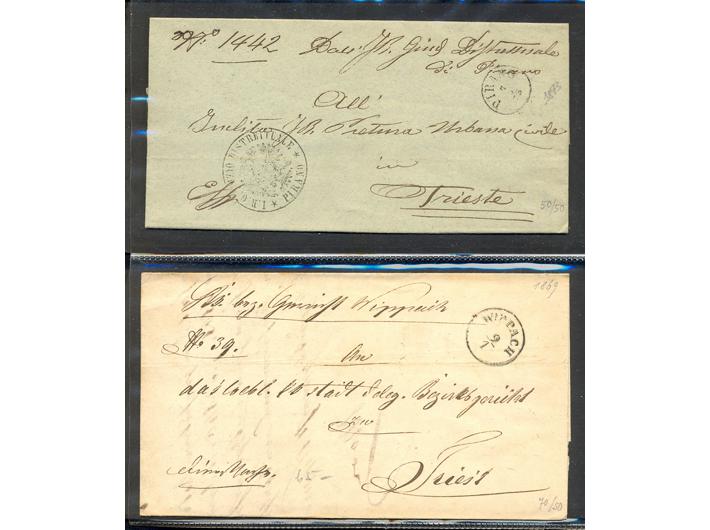 No 1442 Dall' I.R. Giud. Distrettuale
di Pirano
PIRANO
1873
All'
Inclita I.R. Pretura Urbana Civile
I.R. GIUDIZIO DISTRETTUALE * PIRANO *
in
Trieste
50/50
1869
bez. Gericht Wippach
WIPPACH
9
No 39.
An
das loebl. städt deleg. Bezirksgericht
zu
Triest
65-
70/50